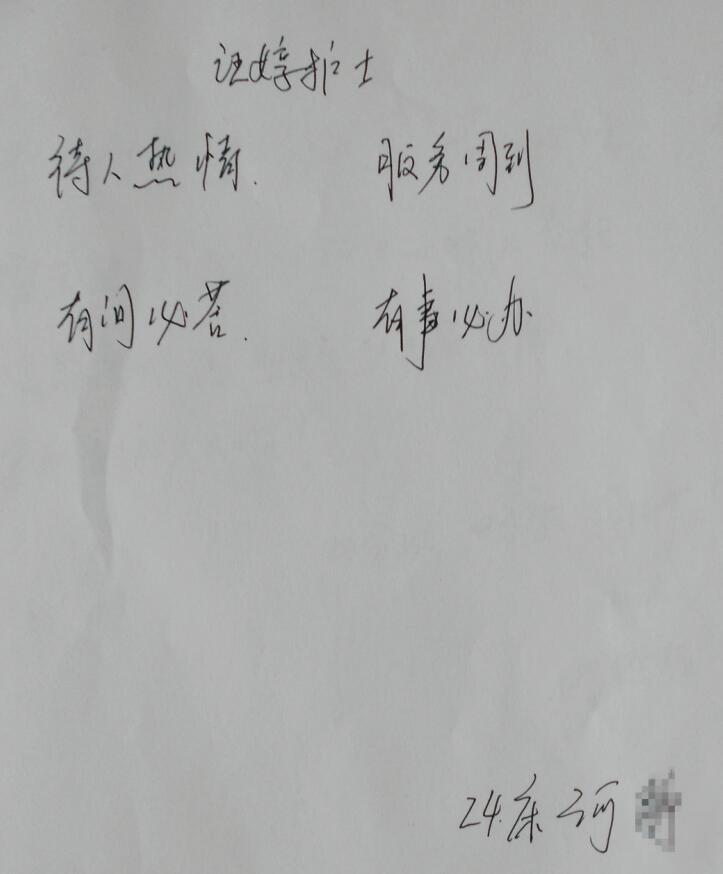 汪婷护士
待人热情. 服务周到
有问必答. 有事必办
24床